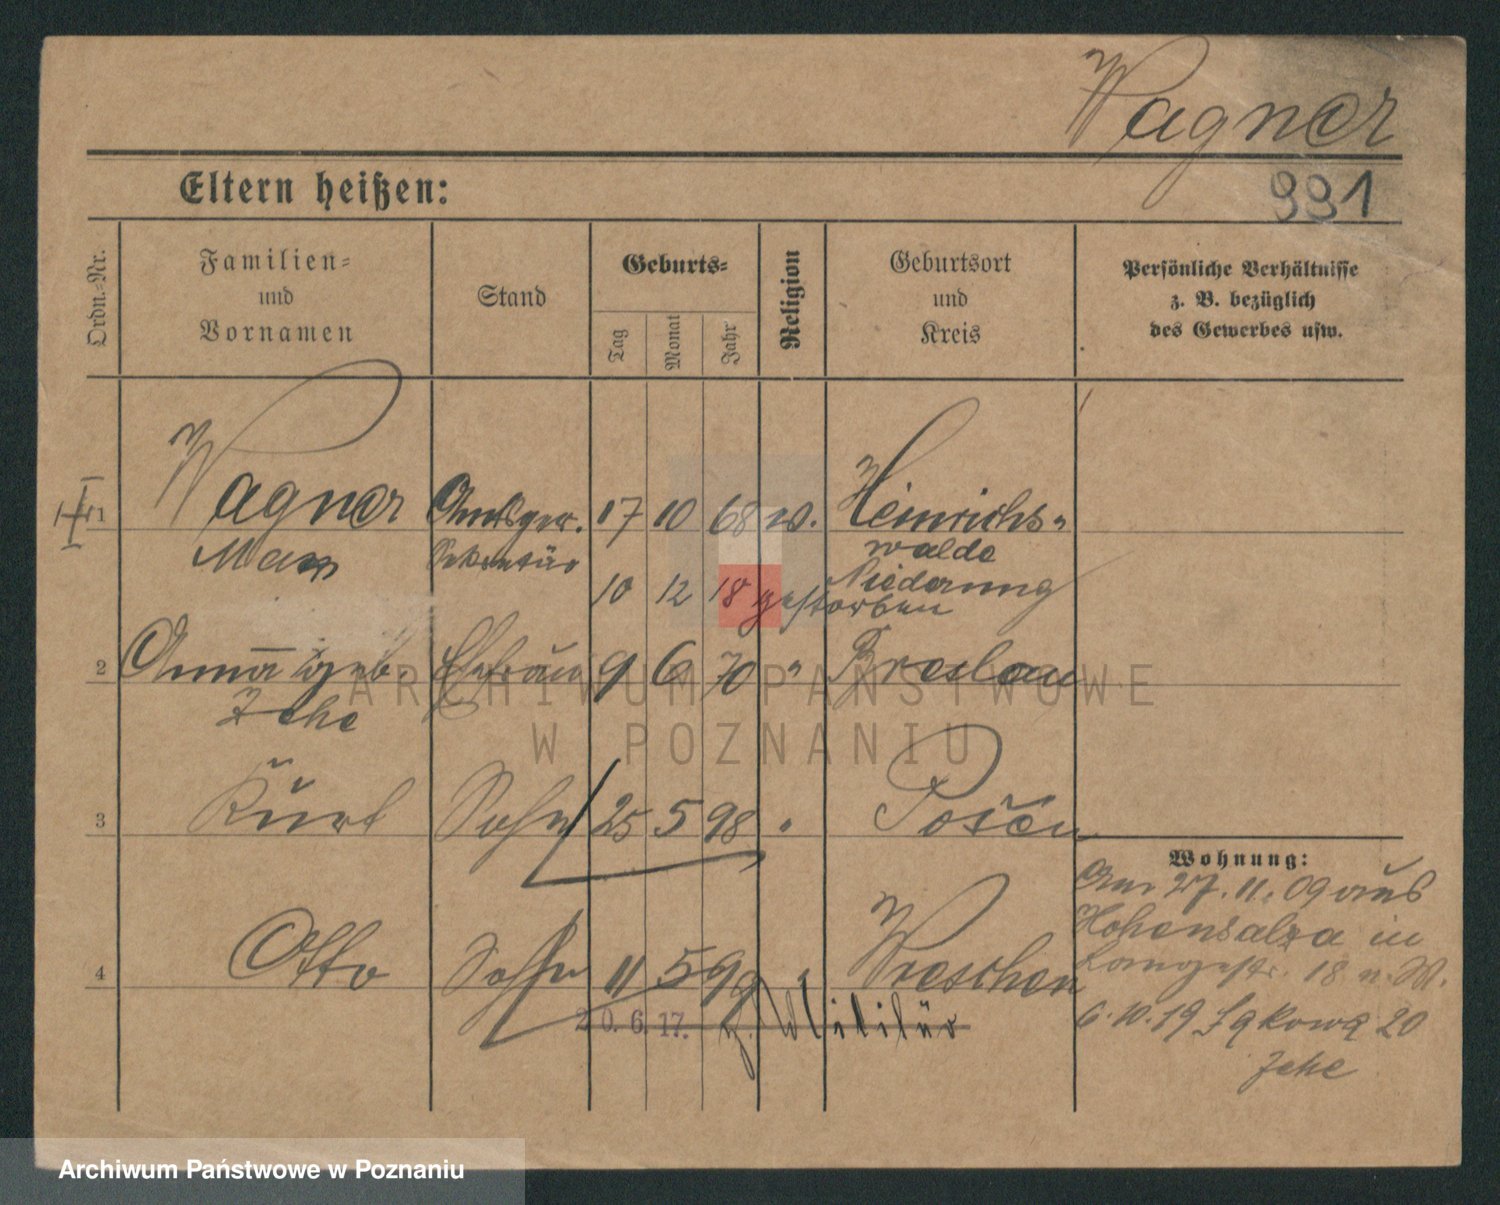 Wagner
Eltern heißen:
991
Ordn.-Nr.
Familien- und Vornamen
Stand
Geburts-
Tag
Monat
Jahr
Religion
Geburtsort und Kreis
Persönliche Verhältnisse
z. B. bezüglich
des Gewerbes usw.
1 Wagner Amtsger. 17 10 68 w. Heinrichs-
Max Sekretär walde
Niederung
10 12 18 gestorben
2 Anna geb. Ehefrau 9 6 70 " Breslau
Zehe
3 Kurt Sohn 25 5 98 " Posen
Wohnung:
Am 27. 11. 09 aus
Hohensalza in
4 Otto Sohn 11 5 99 " Wreschen
Langestr. 18 n. W.
20. 6. 17. z. Militär
6. 10. 19 Łąkowa 20
Zehe
ARCHIWUM PAŃSTWOWE
W POZNANIU
Archiwum Państwowe w Poznaniu